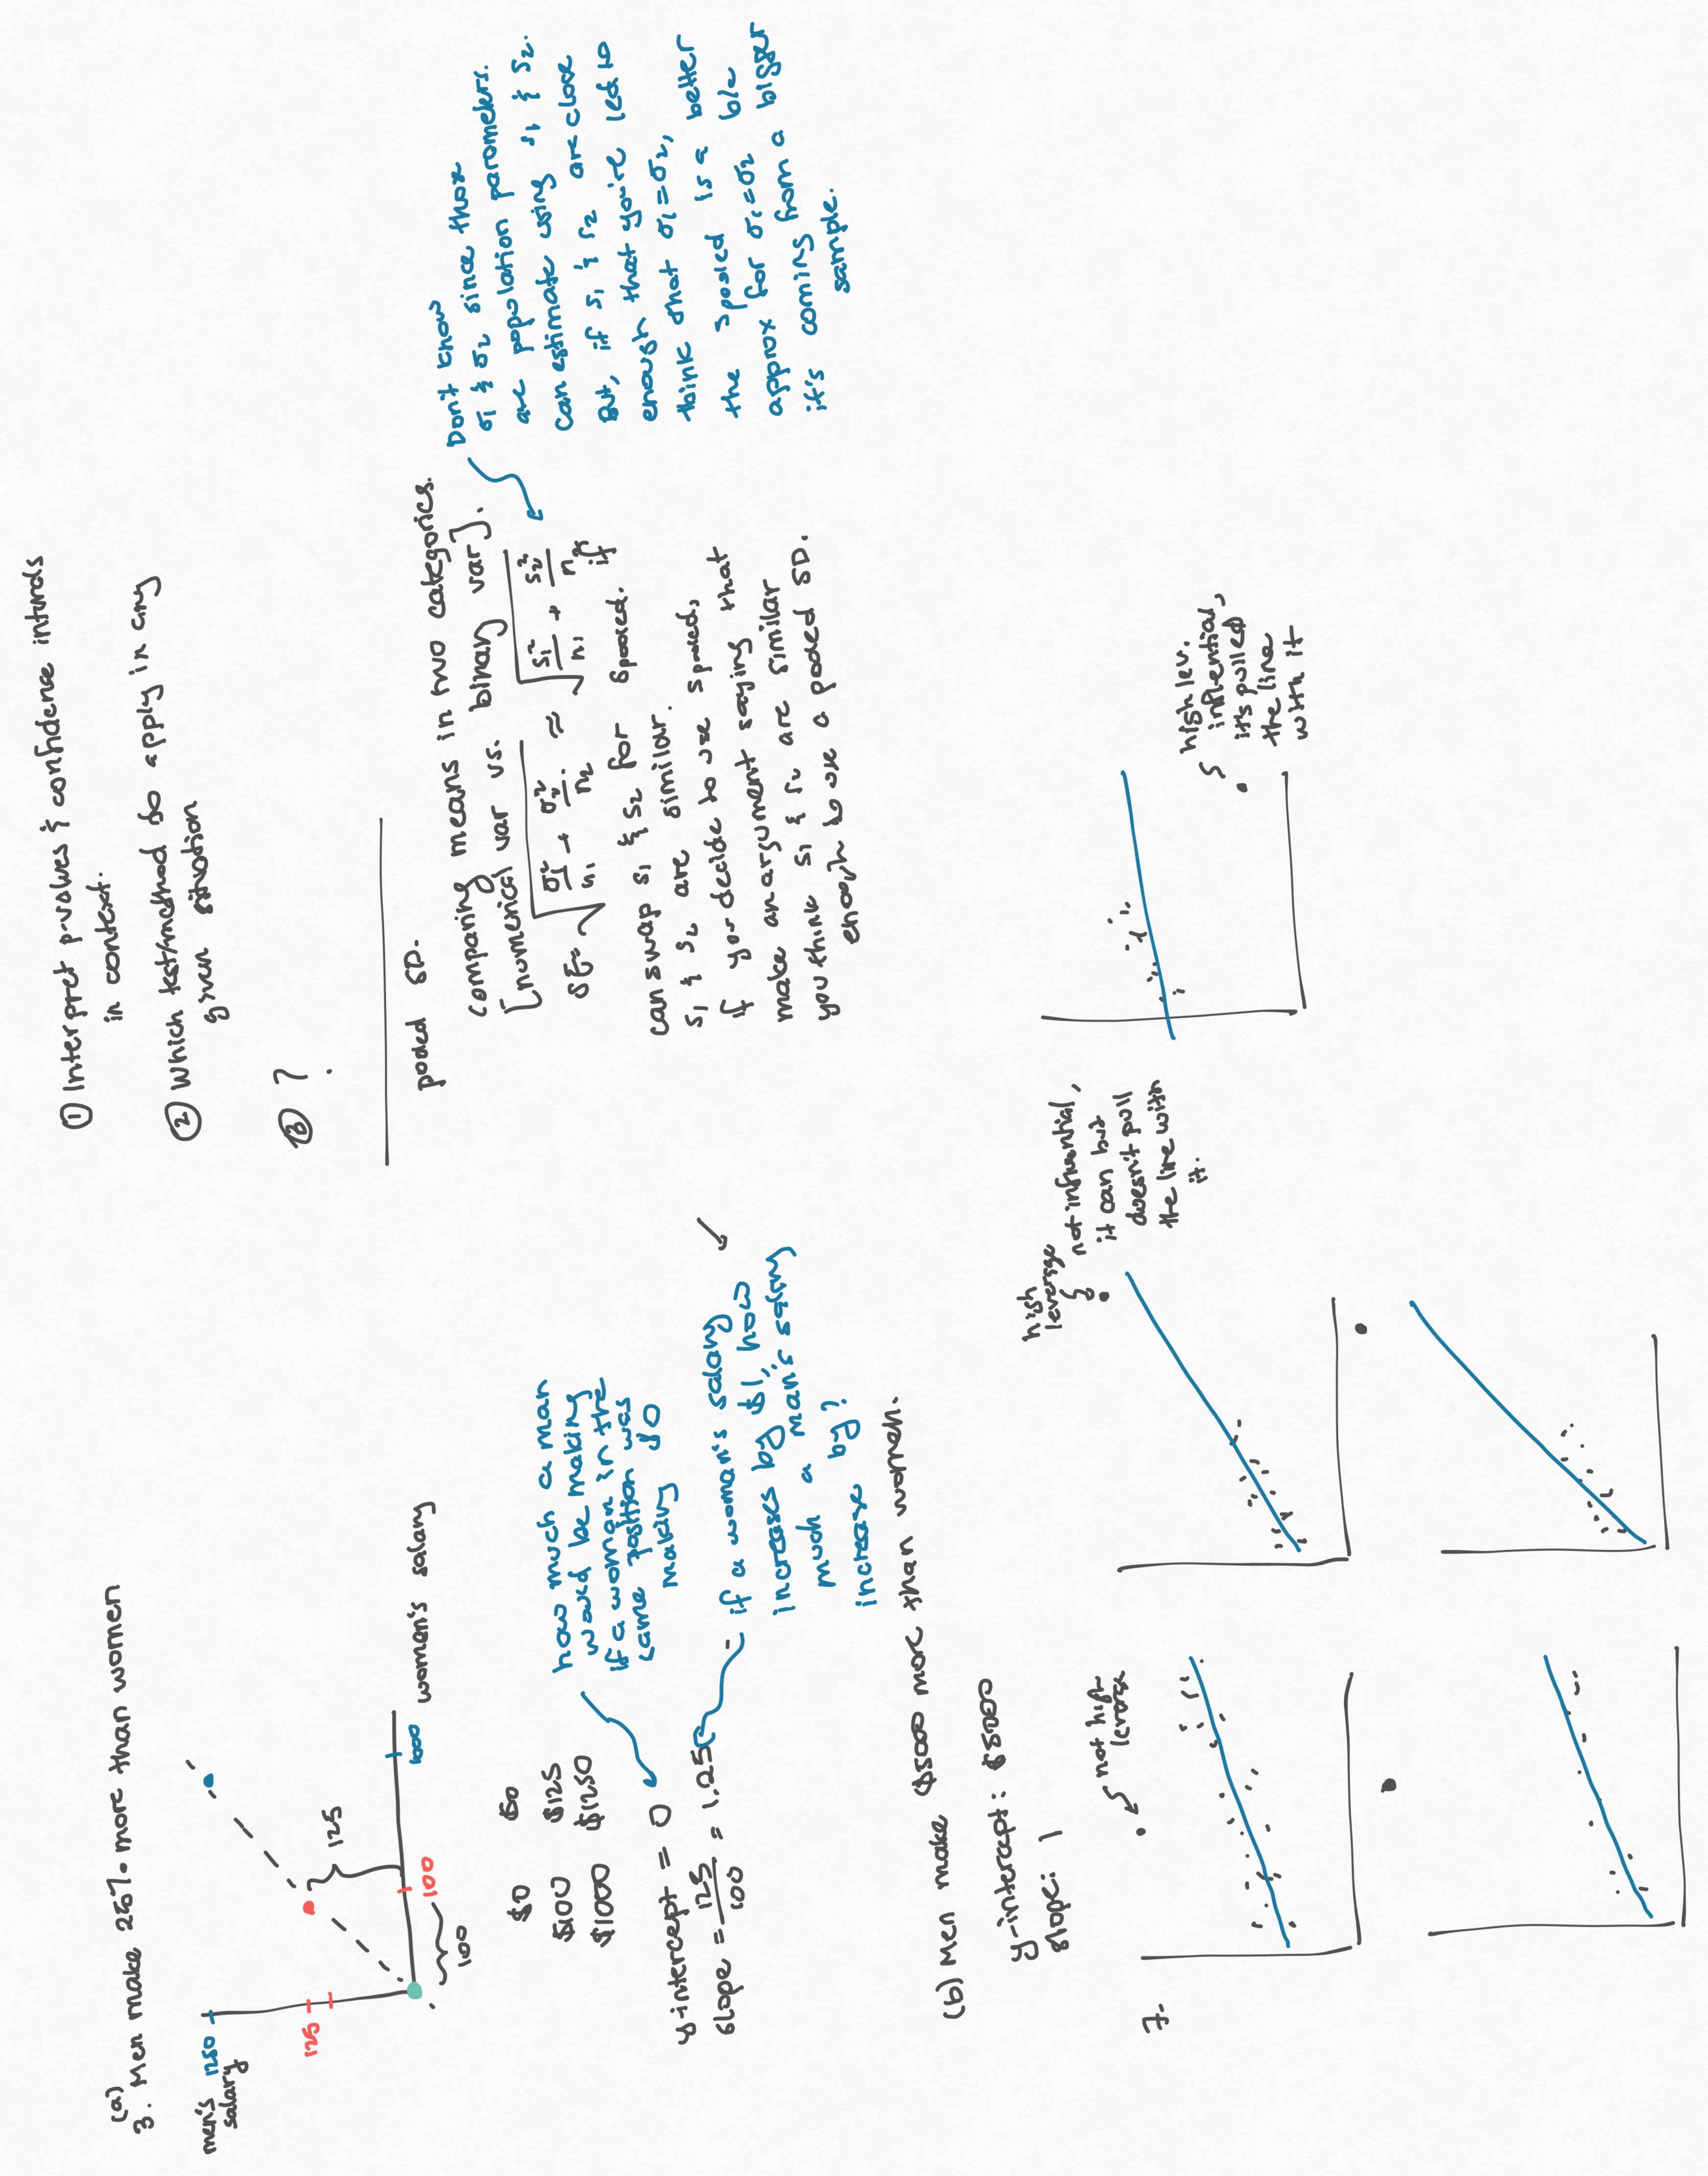 (a)
3. Men make 25% more than women
men's 1250
salary
125
125
100
100
1000
women's salary
$0 $0
$100 $125
$1000 $1250
y-intercept = 0
slope = 125/100 = 1.25
how much a man
would be making
if a woman in the
same position was
making $0
- if a woman's salary
increases by $1, how
much a man's salary
increase by?
(b) Men make $5000 more than women.
y-intercept: $5000
slope: 1
7.
not high
leverage
high
leverage
not influential,
it can but
doesn't pull
the line with
it.
high lev.
inflential,
it's pulled
the line
with it
① Interpret p-values & confidence intervals
in context.
② Which test/method to apply in any
given situation
③ ?
pooled SD.
Comparing means in two categories.
[numerical var vs. binary var].
SE = √(σ₁²/n₁ + σ₂²/n₂) ≈ √(s₁²/n₁ + s₂²/n₂)
can swap s₁ & s₂ for spooled. if
s₁ & s₂ are similar.
if you decide to use spooled,
make an argument saying that
you think s₁ & s₂ are similar
enough to use a pooled SD.
Don't know
σ₁ & σ₂ since those
are population parameters.
Can estimate using s₁ & s₂.
But, if s₁ & s₂ are close
enough that you're led to
think that σ₁=σ₂,
the spooled is a better
approx for σ₁=σ₂ b/c
it's coming from a bigger
sample.